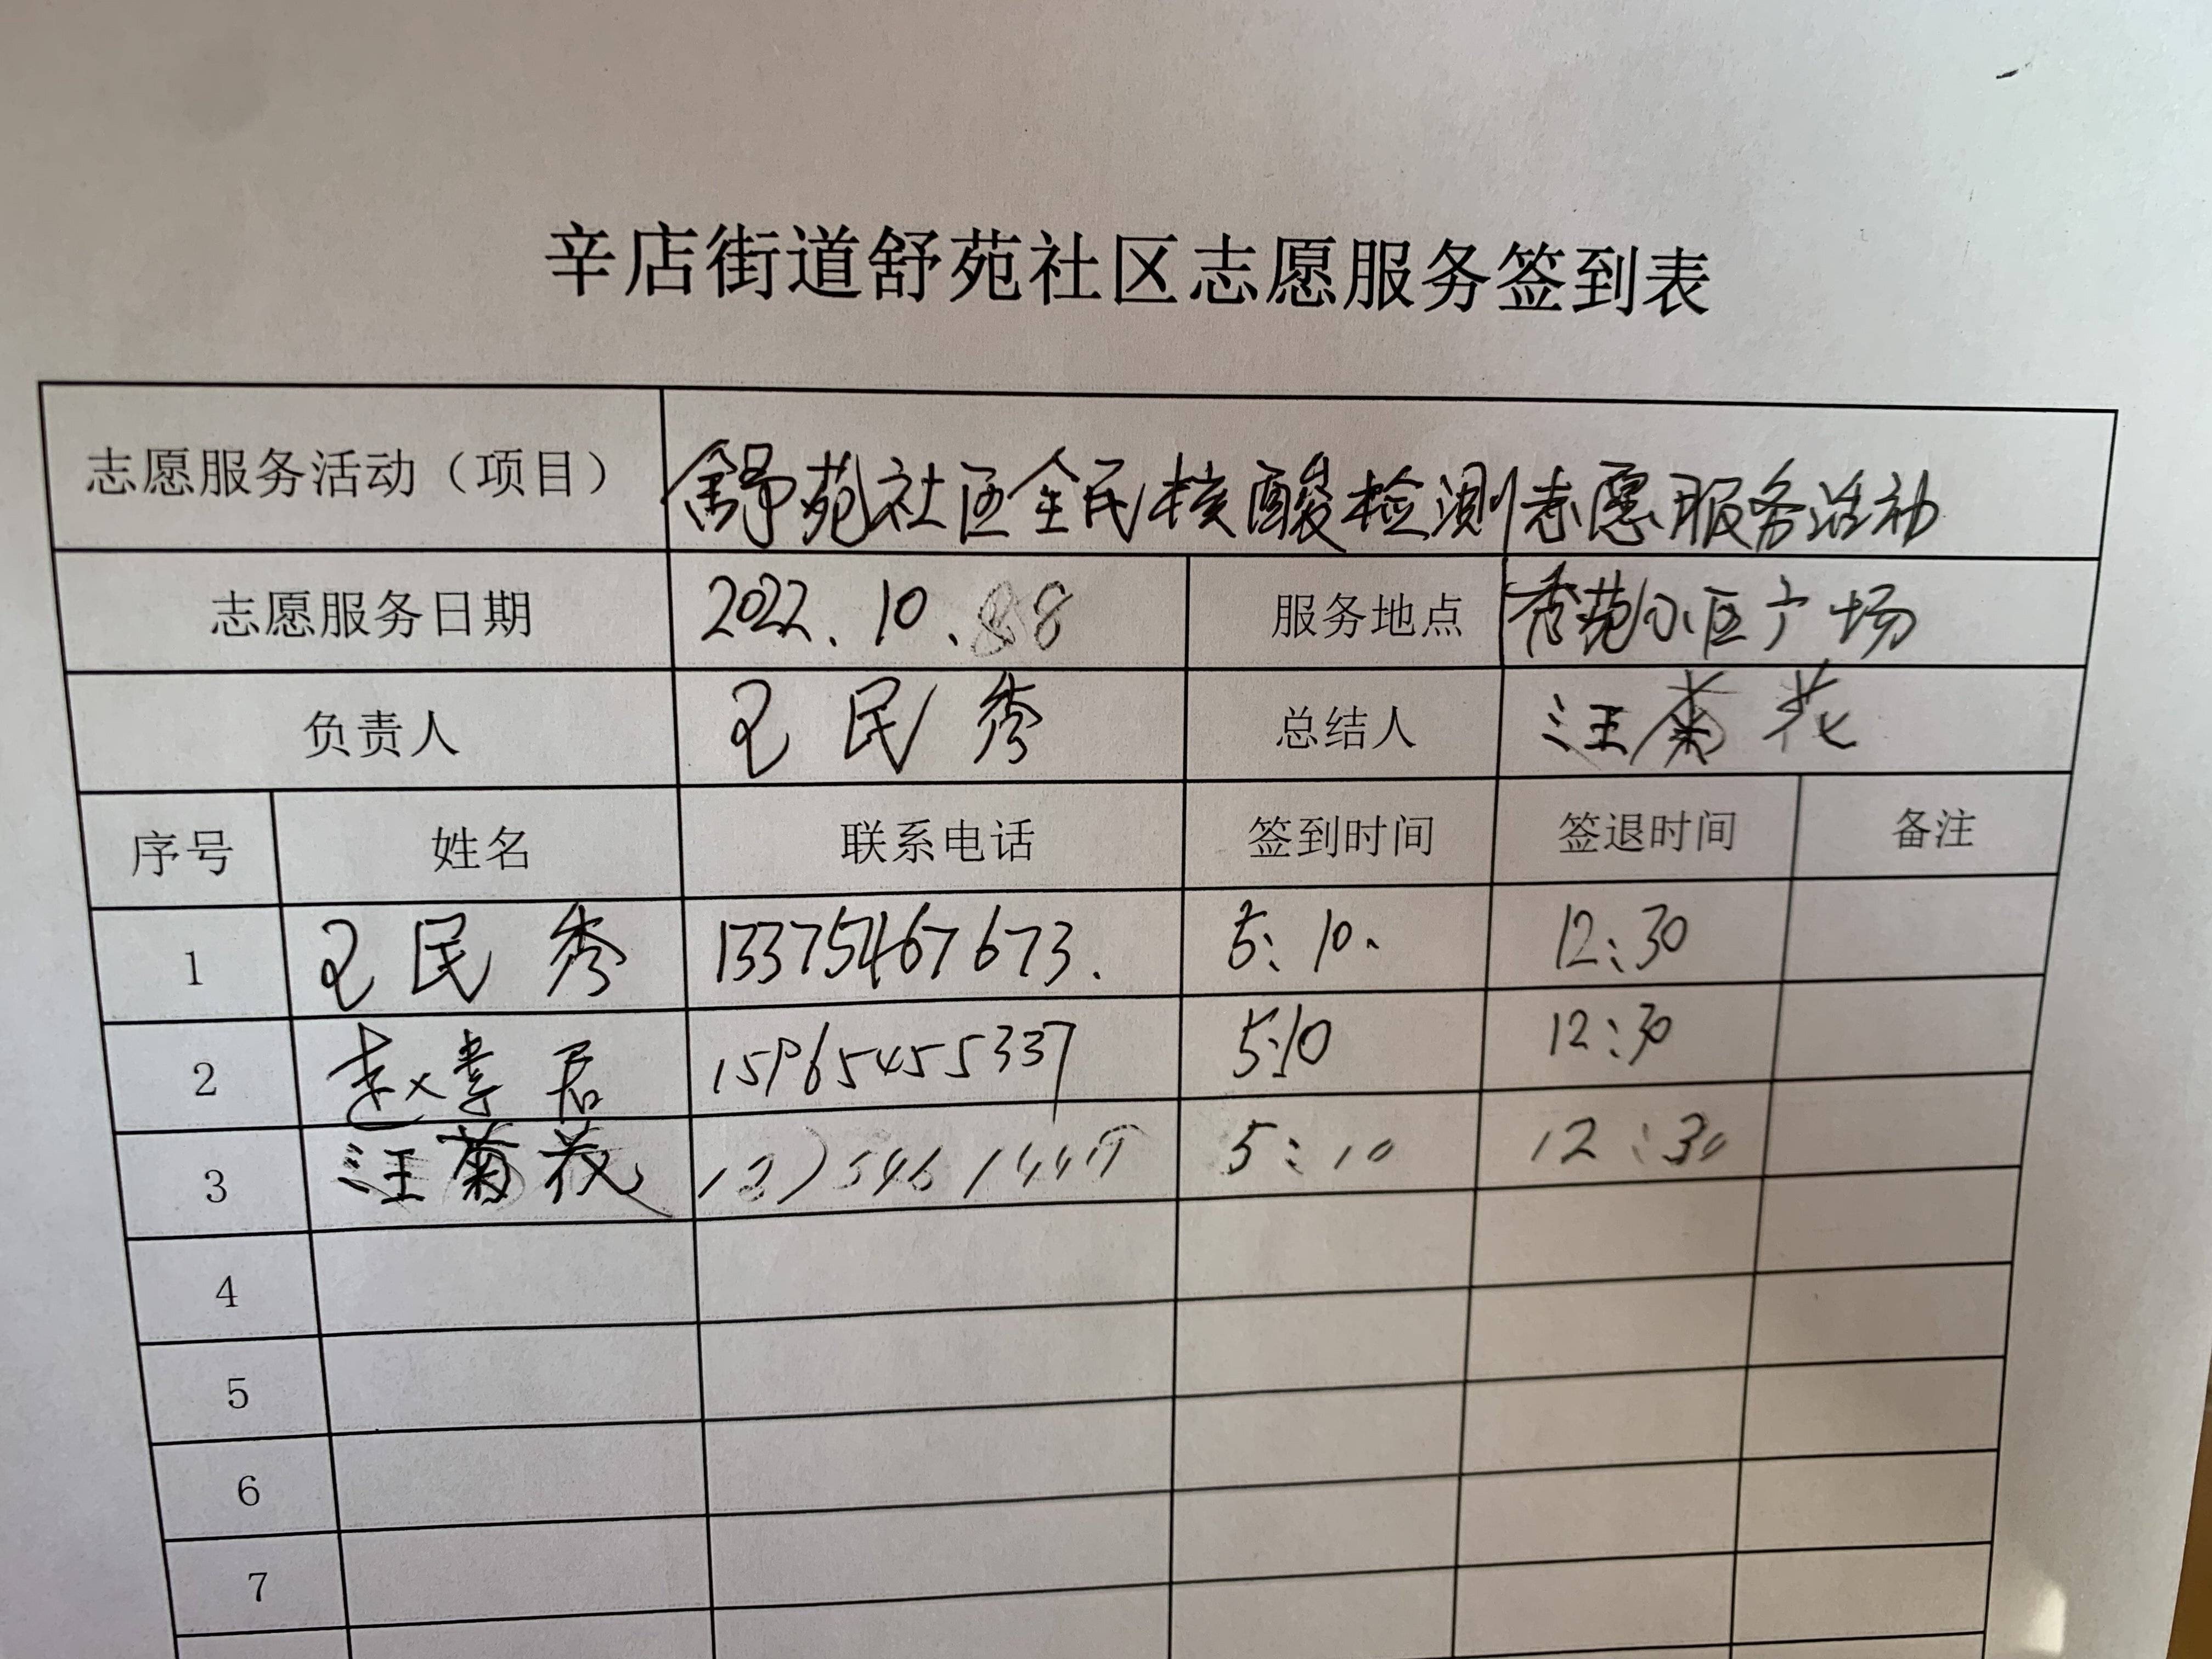 辛店街道舒苑社区志愿服务签到表
志愿服务活动（项目） 舒苑社区全民核酸检测志愿服务活动
志愿服务日期 2022.10.8 服务地点 秀苑小区广场
负责人 王民秀 总结人 汪菊花
序号 姓名 联系电话 签到时间 签退时间 备注
1 王民秀 13375467673. 5:10. 12:30
2 赵孝君 15965455337 5:10 12:30
3 汪菊花 5:10 12:30
4
5
6
7